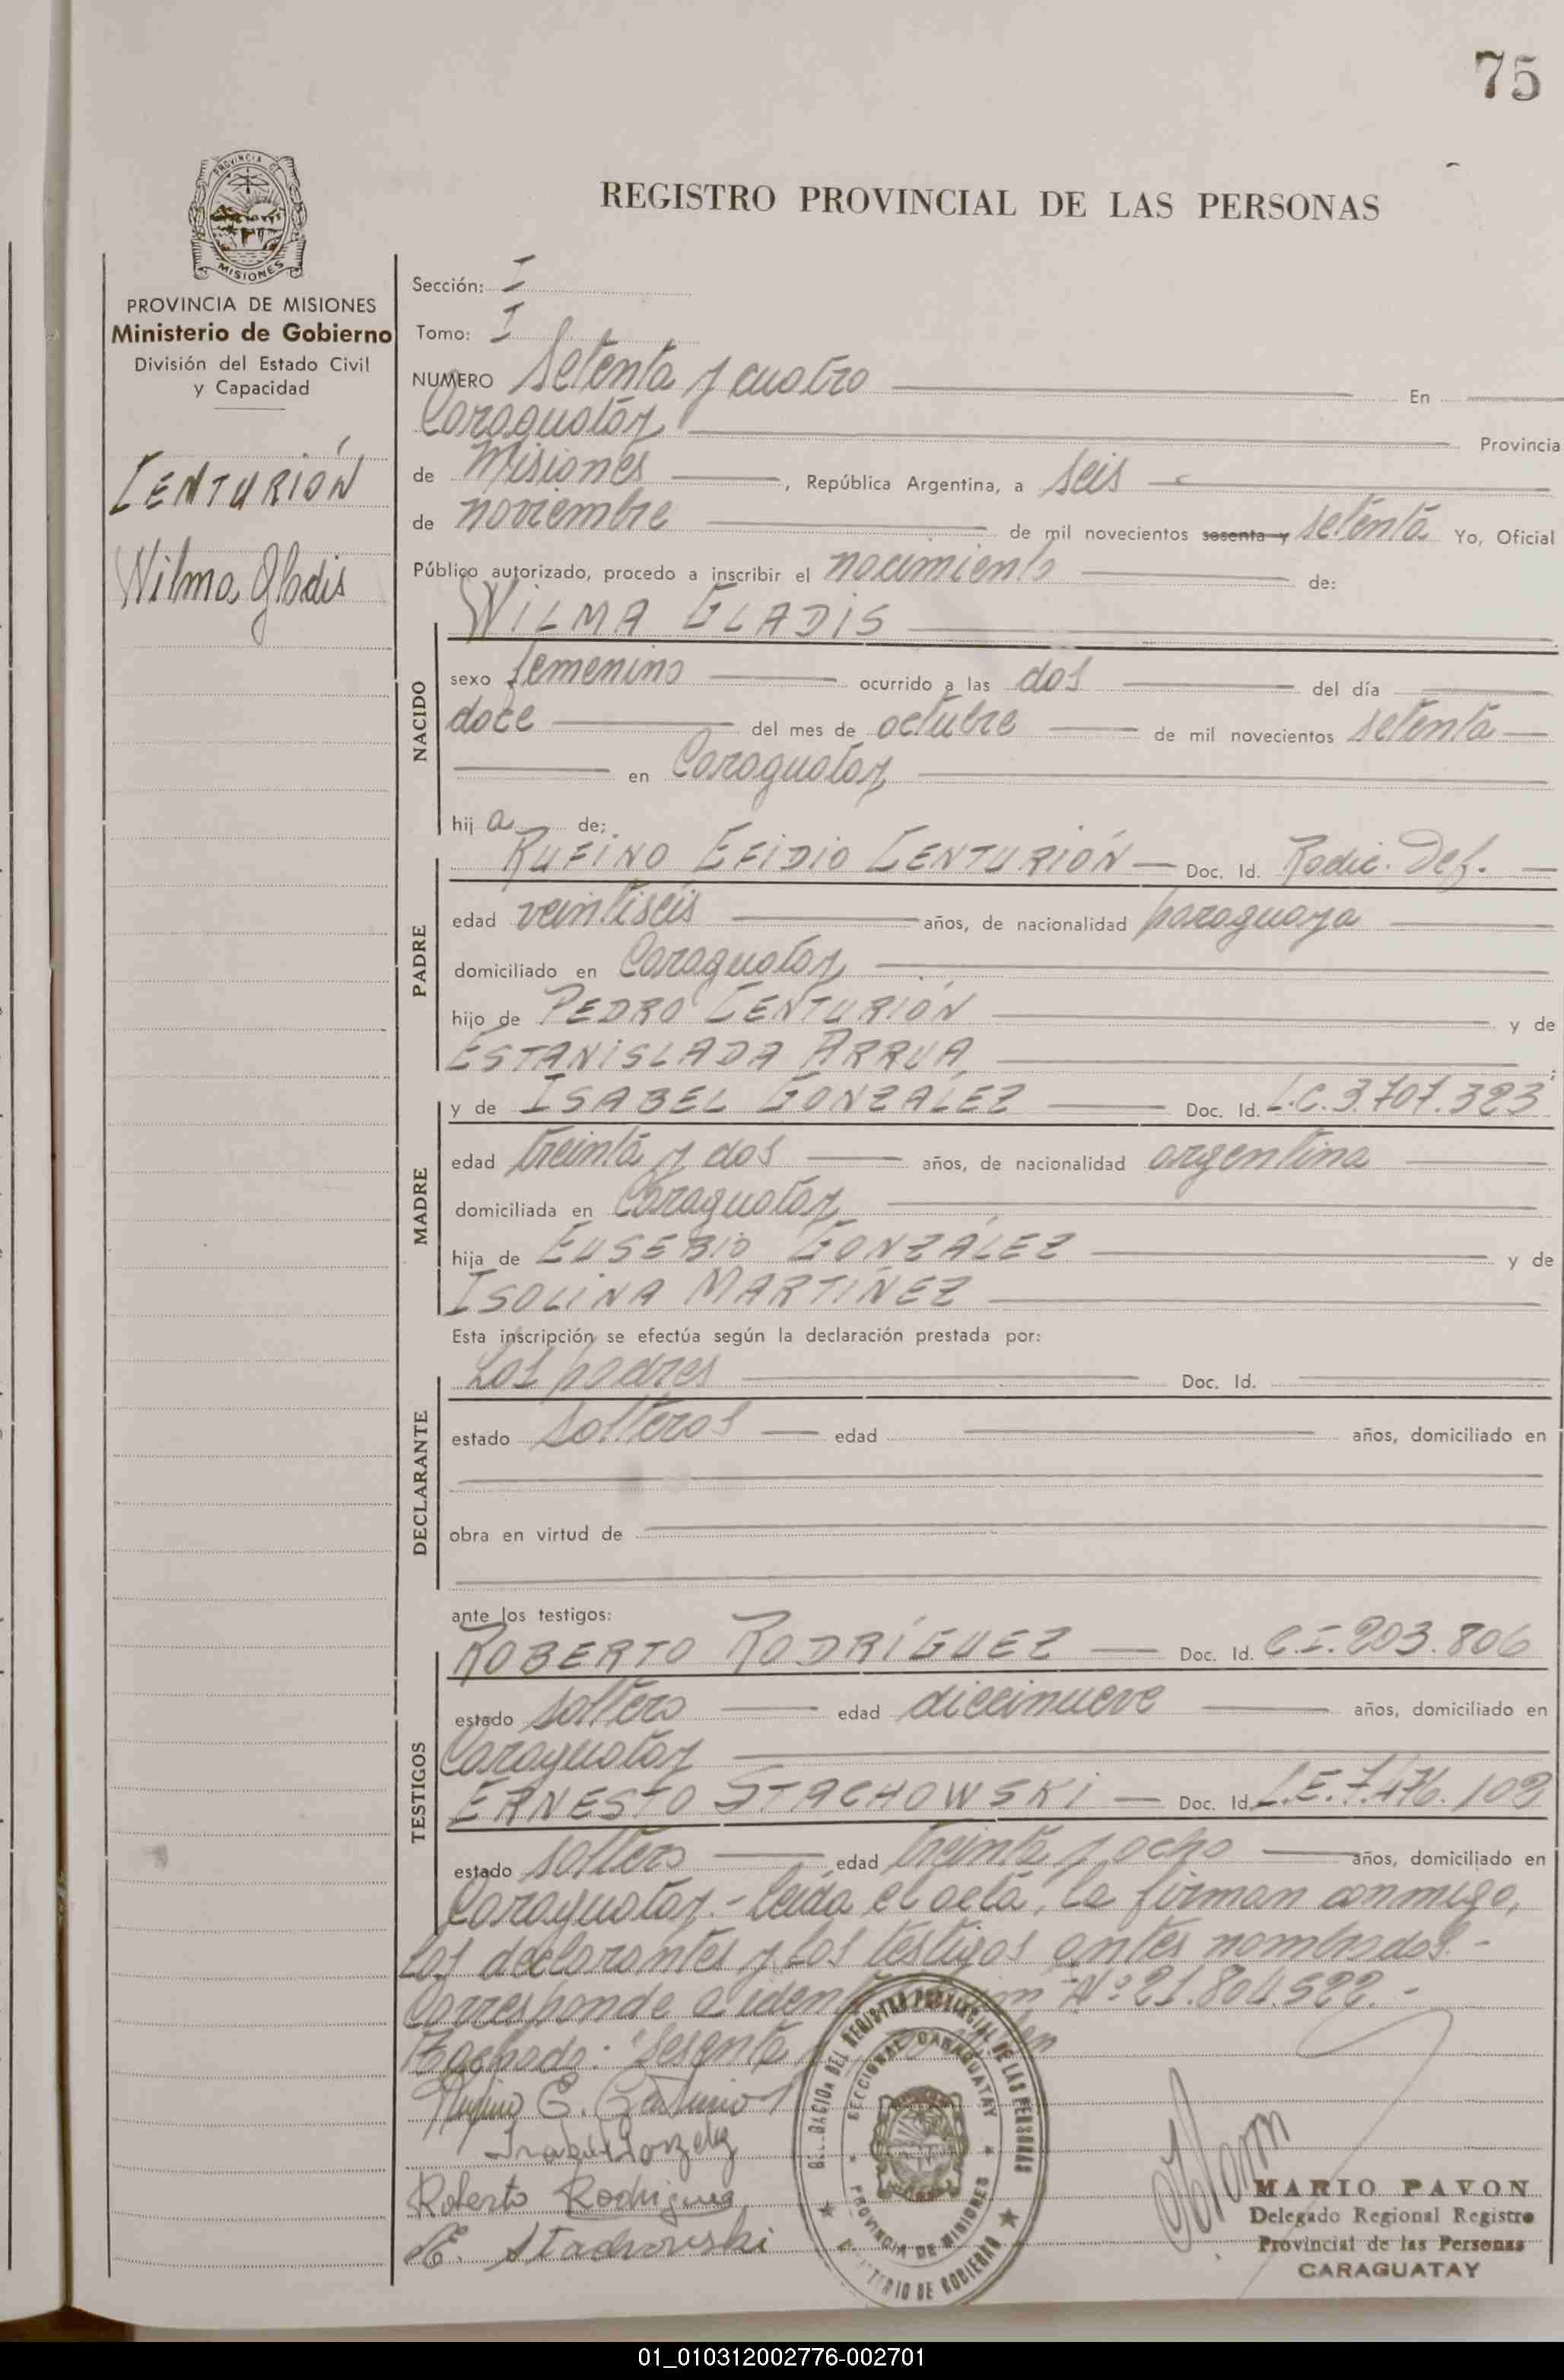 75
PROVINCIA DE
MISIONES
REGISTRO PROVINCIAL DE LAS PERSONAS
PROVINCIA DE MISIONES
Ministerio de Gobierno
División del Estado Civil
y Capacidad
CENTURIÓN
Wilma Gladis
Sección: I
Tomo: I
NUMERO Setenta y cuatro En
Caraguatay Provincia
de Misiones, República Argentina, a seis
de noviembre de mil novecientos sesenta y setenta Yo, Oficial
Público autorizado, procedo a inscribir el nacimiento de:
WILMA GLADIS
NACIDO
sexo femenino ocurrido a las dos del día
doce del mes de octubre de mil novecientos setenta
en Caraguatay
hija de:
PADRE
RUFINO EFIDIO CENTURIÓN Doc. Id. Radic. Def.
edad veintiseis años, de nacionalidad paraguaya
domiciliado en Caraguatay
hijo de PEDRO CENTURIÓN y de
ESTANISLADA ARRUA,
MADRE
y de ISABEL GONZÁLEZ Doc. Id. L.C. 3.707.323
edad treinta y dos años, de nacionalidad argentina
domiciliada en Caraguatay
hija de EUSEBIO GONZÁLEZ y de
ISOLINA MARTÍNEZ
Esta inscripción se efectúa según la declaración prestada por:
DECLARANTE
Los padres Doc. Id.
estado solteros edad años, domiciliado en
obra en virtud de
ante los testigos:
TESTIGOS
ROBERTO RODRÍGUEZ Doc. Id. C.I. 203.806
estado soltero edad diecinueve años, domiciliado en
Caraguatay
ERNESTO STACHOWSKI Doc. Id. L.E. 7.476.102
estado soltero edad treinta y ocho años, domiciliado en
Caraguatay.- Leída el acta, la firman conmigo,
los declarantes y los testigos antes nombrados.-
Corresponde a Nº 21.804.522.-
Tachado: "Sesenta
Rufino E. Centurion
Isabel Gonzalez
Roberto Rodriguez
E. Stachowski
DELEGACION DEL REGISTRO PROVINCIAL DE LAS PERSONAS
SECCIONAL CARAGUATAY
PROVINCIA DE MISIONES
MINISTERIO DE GOBIERNO
MARIO PAVON
Delegado Regional Registro
Provincial de las Personas
CARAGUATAY
01_010312002776-002701